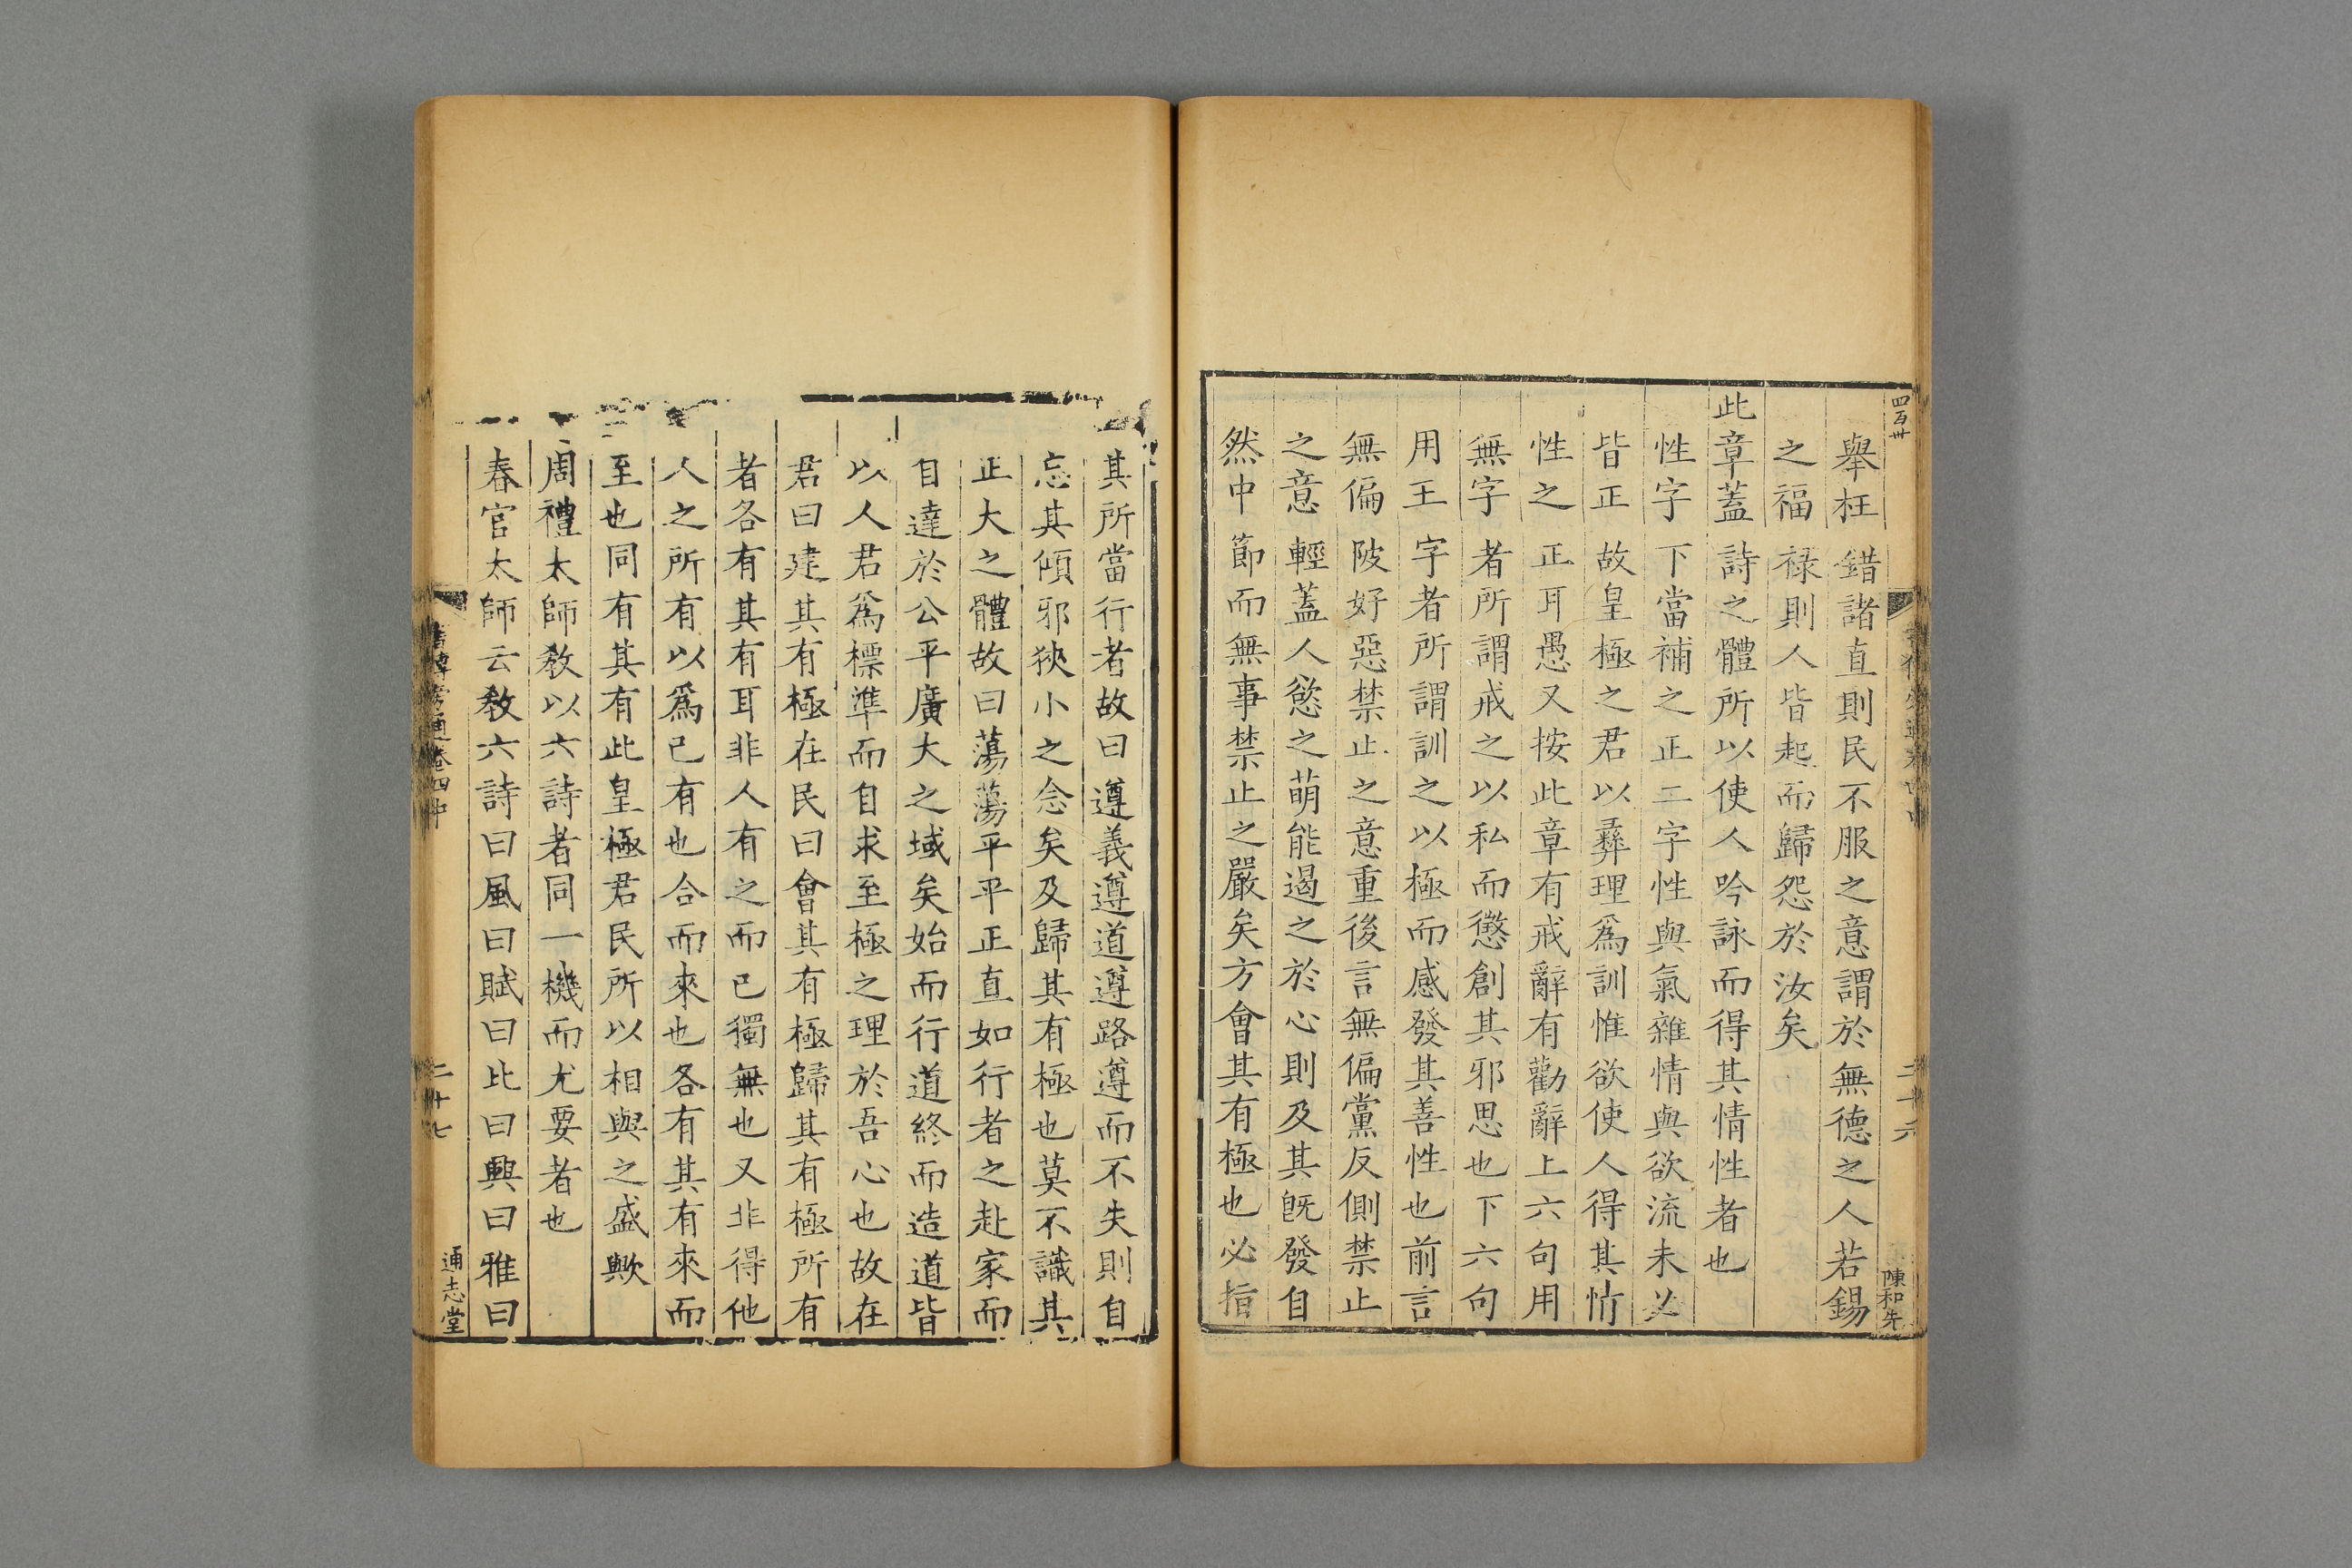 舉枉錯諸直則民不服之意謂於無德之人若錫
之福祿則人皆起而歸怨於汝矣
此章蓋詩之體所以使人吟詠而得其情性者也
性字下當補之正二字性與氣雜情與欲流未必
皆正故皇極之君以彝理爲訓惟欲使人得其情
性之正耳愚又按此章有戒辭有勸辭上六句用
無字者所謂戒之以私而懲創其邪思也下六句
用王字者所謂訓之以極而感發其善性也前言
無偏陂好惡禁止之意重後言無偏黨反側禁止
之意輕蓋人慾之萌能遏之於心則及其旣發自
然中節而無事禁止之嚴矣方會其有極也必指
二十六
陳和先
其所當行者故曰遵義遵道遵路遵而不失則自
忘其傾邪狹小之念矣及歸其有極也莫不識其
正大之體故曰蕩蕩平平正直如行者之赴家而
自達於公平廣大之域矣始而行道終而造道皆
以人君爲標準而自求至極之理於吾心也故在
君曰建其有極在民曰會其有極歸其有極所有
者各有其有耳非人有之而已獨無也又非得他
人之所有以爲己有也合而來也各有其有來而
至也同有其有此皇極君民所以相與之盛歟
周禮太師敎以六詩者同一機而尤要者也
春官太師云敎六詩曰風曰賦曰比曰興曰雅曰
卷四中
二十七
通志堂